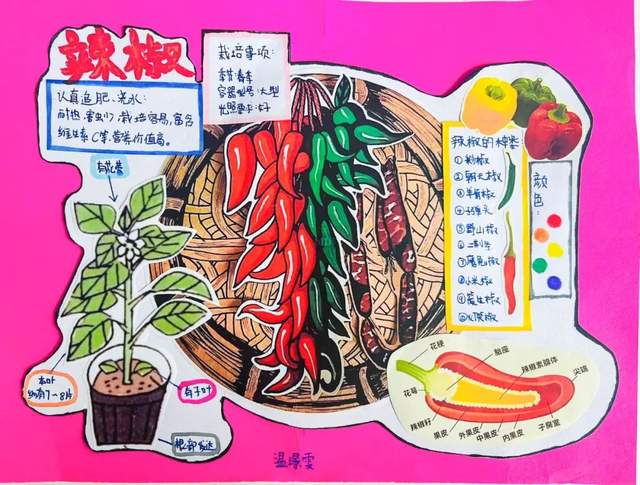 辣椒
认真追肥、浇水:
耐热、害虫少、栽培容易,富含
维生素C等,营养价值高。
栽培事项:
季节:春季
容器型号:大型
光照要求:好
有花蕾
本叶
约有7~8片
有子叶
根部发达
辣椒的种类:
①
②朝天椒
③羊角椒
④子弹头
⑤野山椒
⑥二荆条
⑦魔鬼椒
⑧小米椒
⑨
⑩灯笼椒
颜色:
花梗
胎座
辣椒素腺体
尖端
花萼
辣椒籽
果皮
外果皮
中果皮
内果皮
子房室